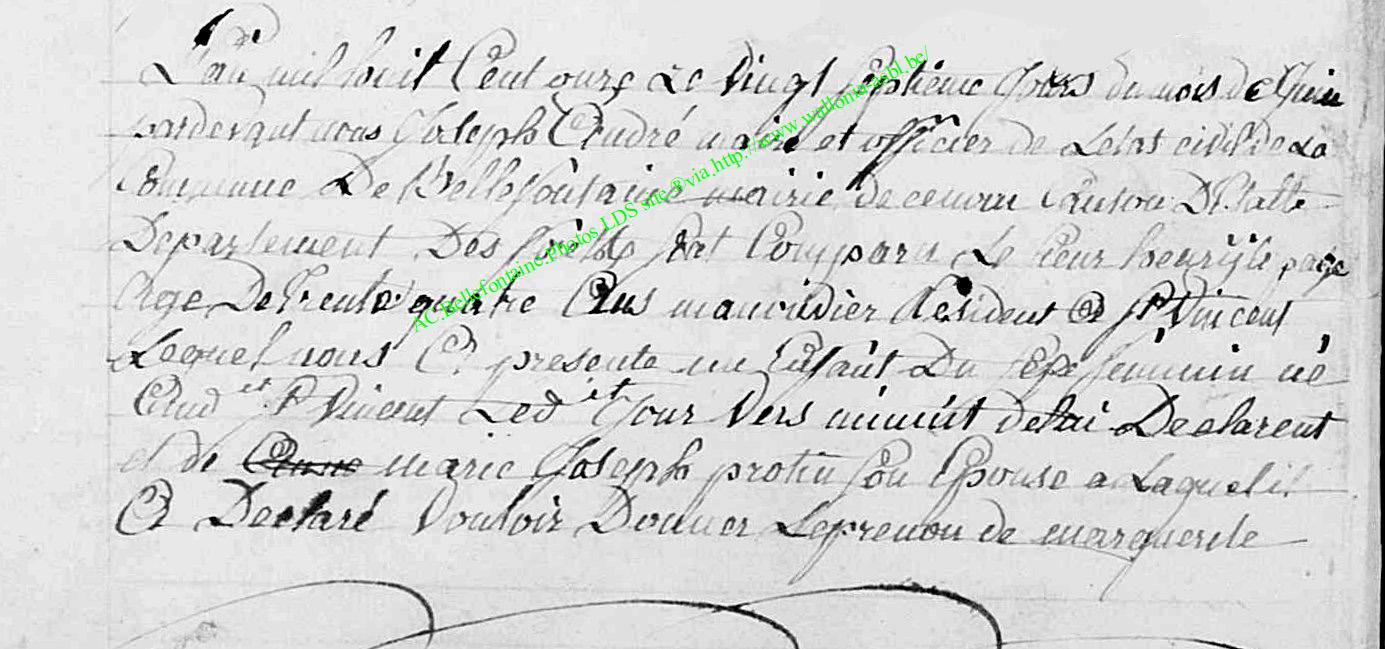 L'an mil huit Cent onze Le vingt Septième Jours du mois de Juin
pardevant nous Joseph André maire et officier de Letat civil de La
Commune De Bellefontaine mairie de cenom Canton D'Etalle
Departement Des forêts Est Comparu Le sieur henri le page
Age De trente quatre Ans manouvrier Résident A St Vincent
Lequel nous A presente un Enfant Du Sexe feminin né
Aud it St Vincent Led it Jour Vers minuit de lui Declarent
et de marie Joseph protin son Epouse a Laquel il
A Declaré Vouloir Donner Leprenon de marguerite
AC.Bellefontaine.Photos LDS site ®via http://www.wallonia-asbl.be/